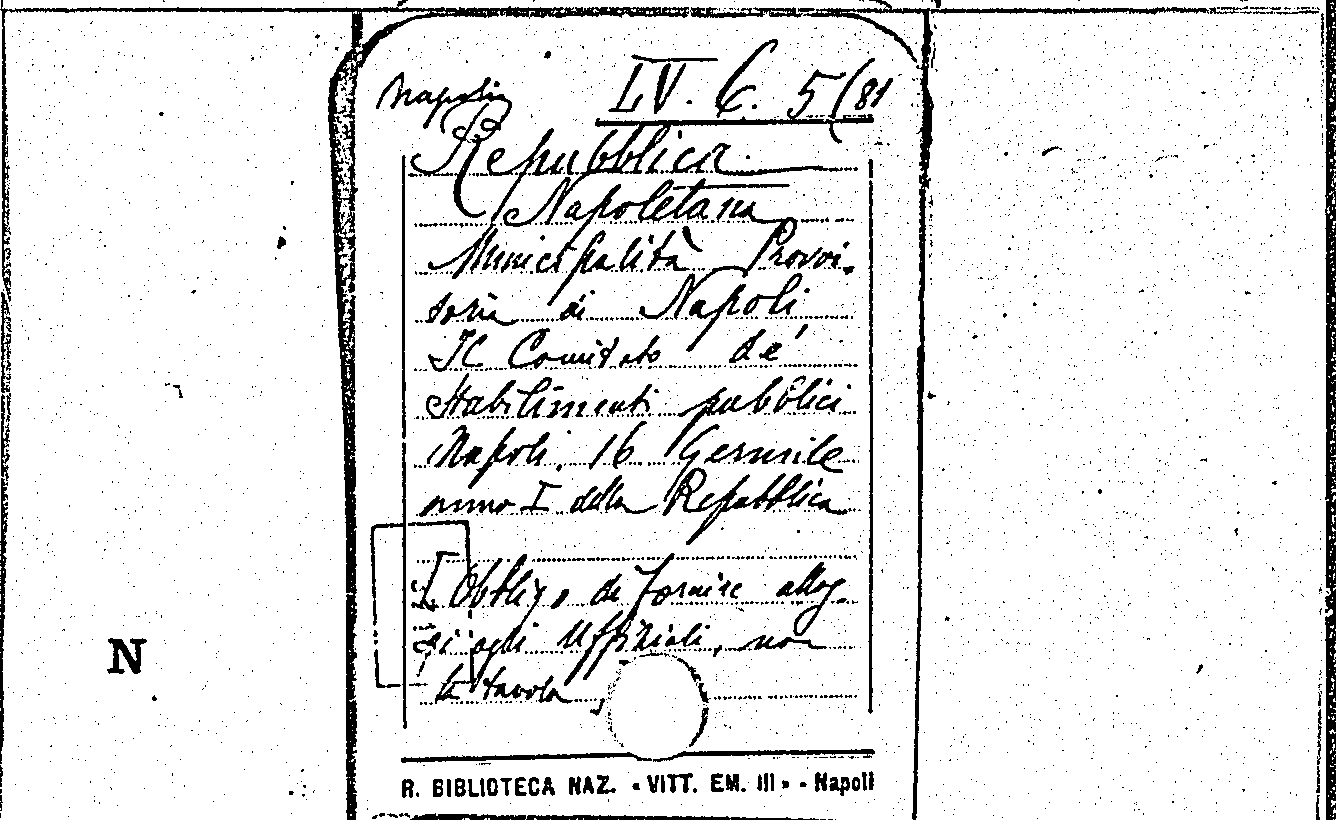 Napoli LV. C. 5(81
Repubblica
Napoletana
Municipalità Provvi-
soria di Napoli
Il Comitato de'
Stabilimenti pubblici
Napoli, 16 Germile
anno I della Repubblica
[Obbligo di fornire allog-
gi agli Uffiziali, non
la tavola,
N
R. BIBLIOTECA NAZ. « VITT. EM. III » - Napoli